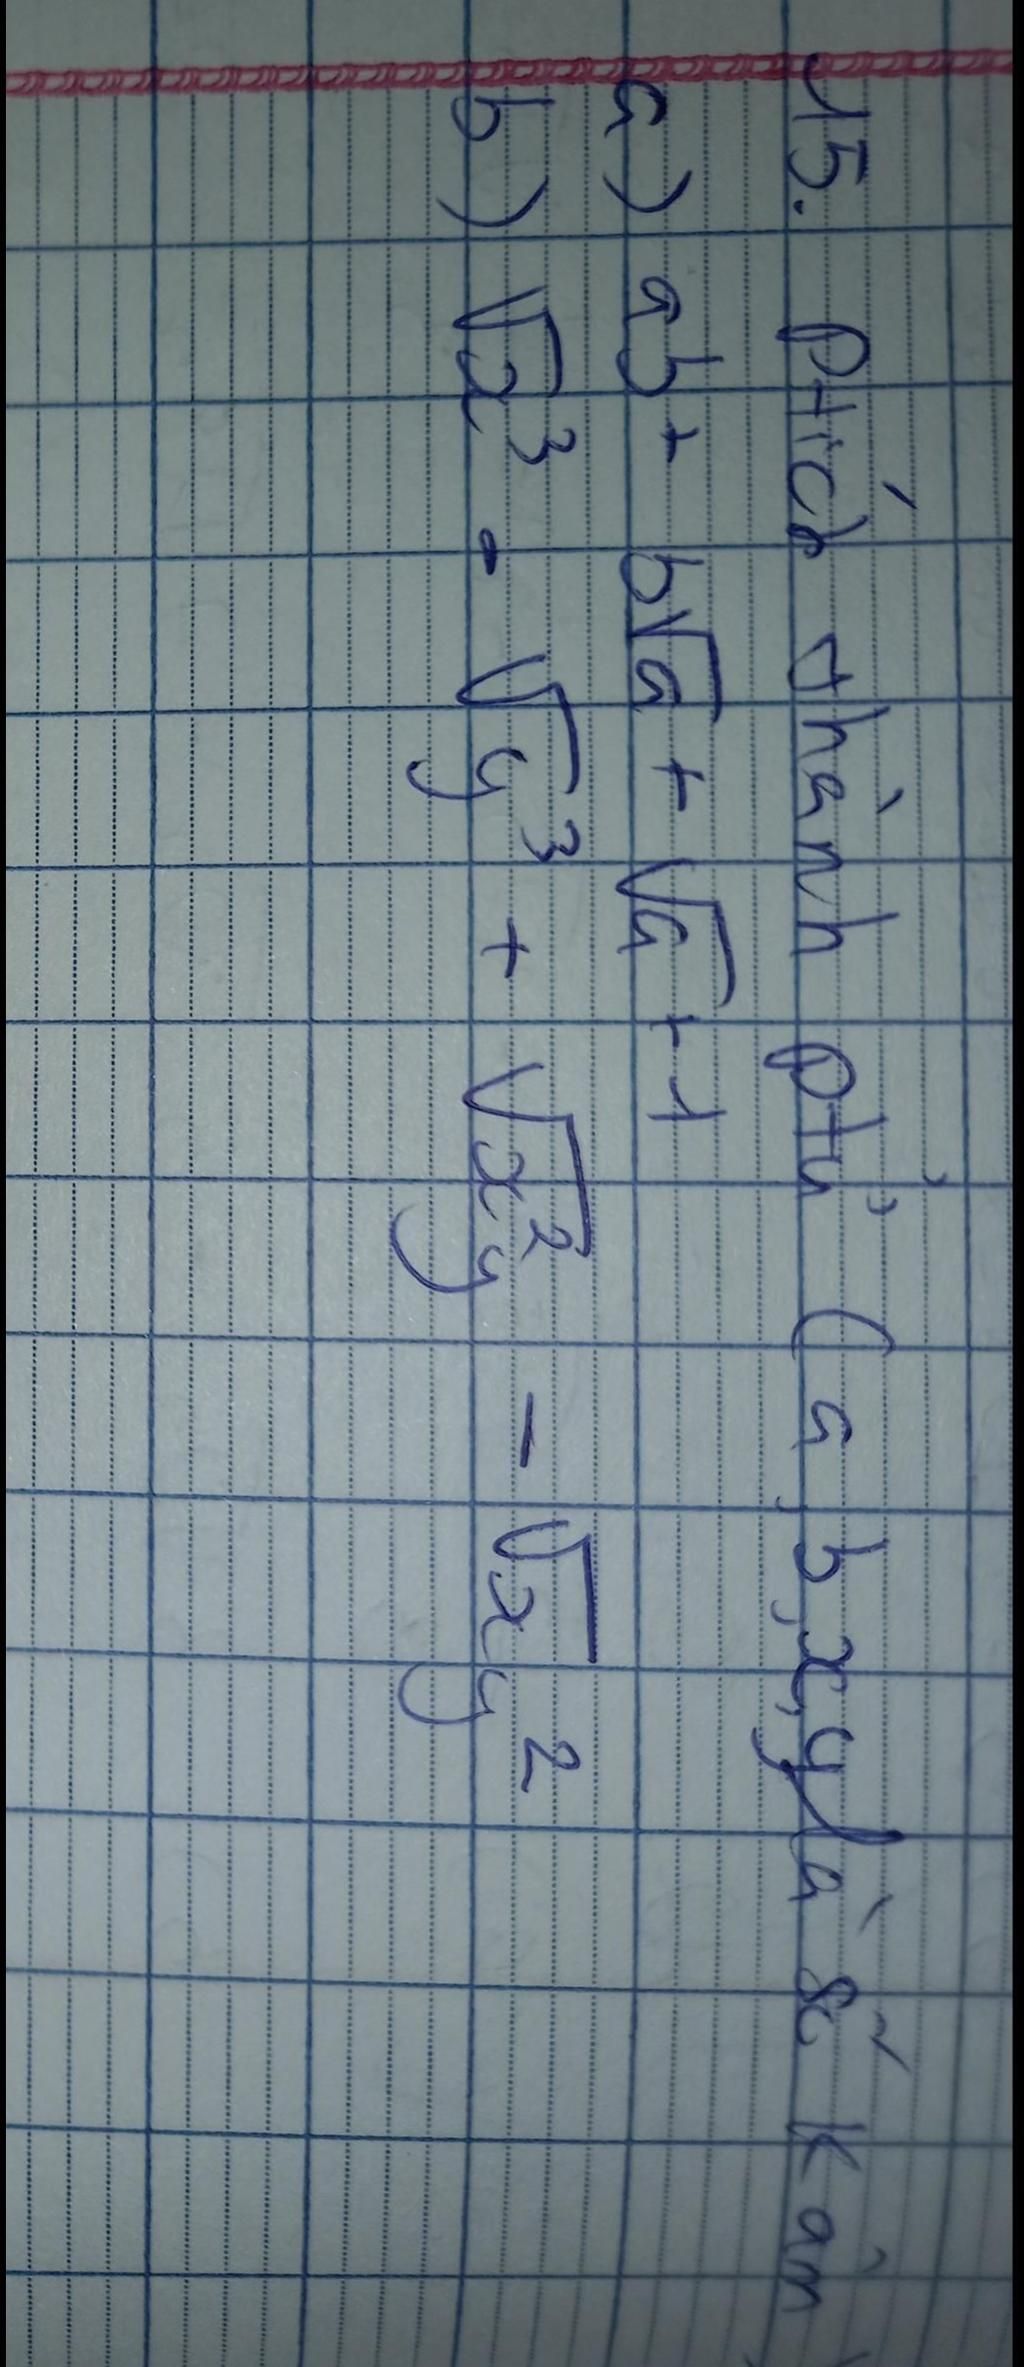 15. Ptích thành ptử (a, b, x, y là số k âm)
a) ab + b√a + √a + 1
b) √x³ - √y³ + √x²y - √xy²